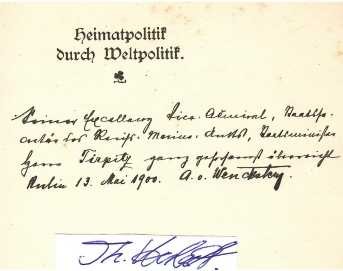 Heimatpolitik
durch Weltpolitik.
Seiner Excellenz Vice-Admiral, Staatsse-
cretär des Reichs-Marine-Amts, Staatsminister
Herrn Tirpitz ganz gehorsamst überreicht
Berlin 13. Mai 1900. A. v. Wenckstern